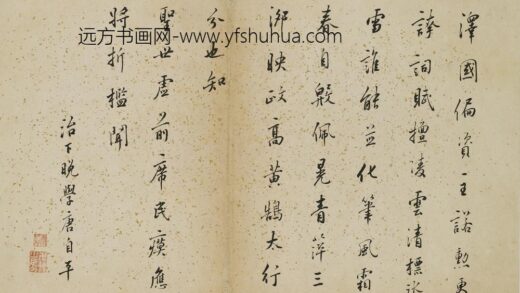 远方书画网- www.yfshuhua.com
澤國偏資主諾勳更
誇詞賦擅凌雲清標冰
雪誰能並化筆風霜
春自殷佩晃青萍三
泖映政高黃鵠太行
分也知
聖世虛前席民瘼應
將折檻聞
治下晚學唐自平